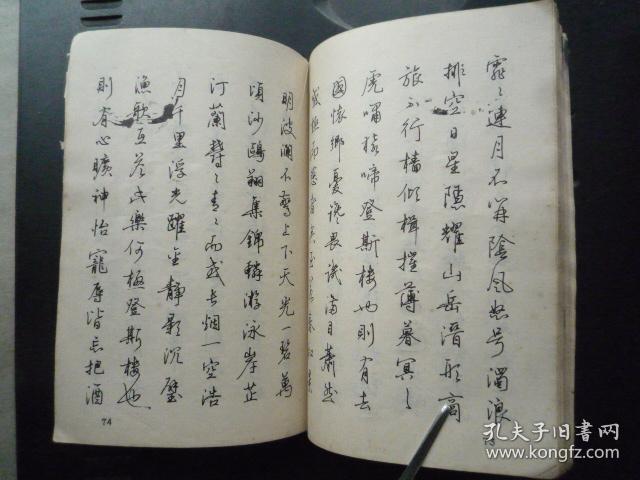 霏〻連月不開陰風怒号濁浪
排空日星隱耀山岳潛形商
旅不行檣傾楫摧薄暮冥〻
虎嘯猿啼登斯樓也則有去
國懷鄉憂讒畏譏滿目蕭然
感極而悲者矣至若春和景
明波瀾不驚上下天光一碧萬
頃沙鷗翔集錦鱗游泳岸芷
汀蘭鬱〻青〻而或長烟一空浩
月千里浮光躍金靜影沉璧
漁歌互答此樂何極登斯樓也
則有心曠神怡寵辱皆忘把酒
74
孔夫子旧书网
www.kongfz.com